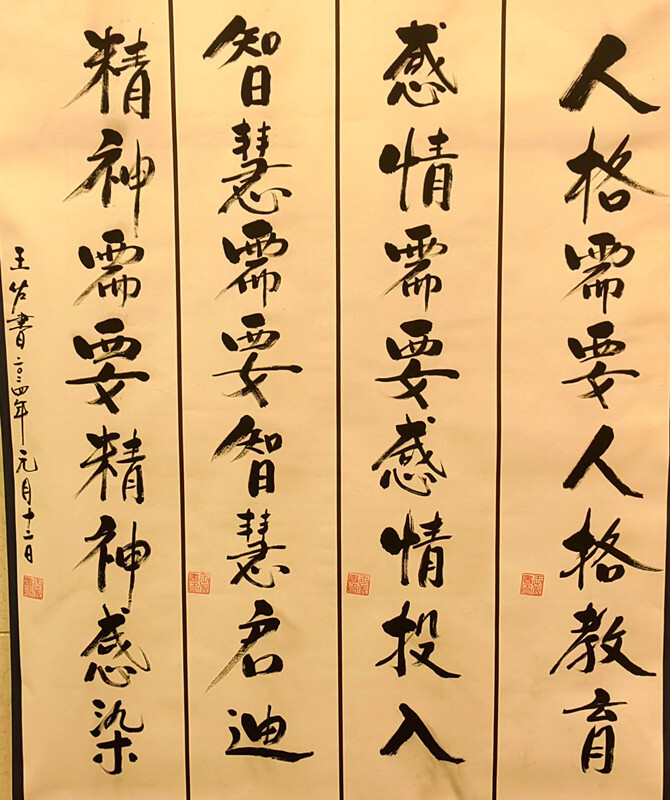 人格需要人格教育
感情需要感情投入
智慧需要智慧启迪
精神需要精神感染
王 書 年元月十二日